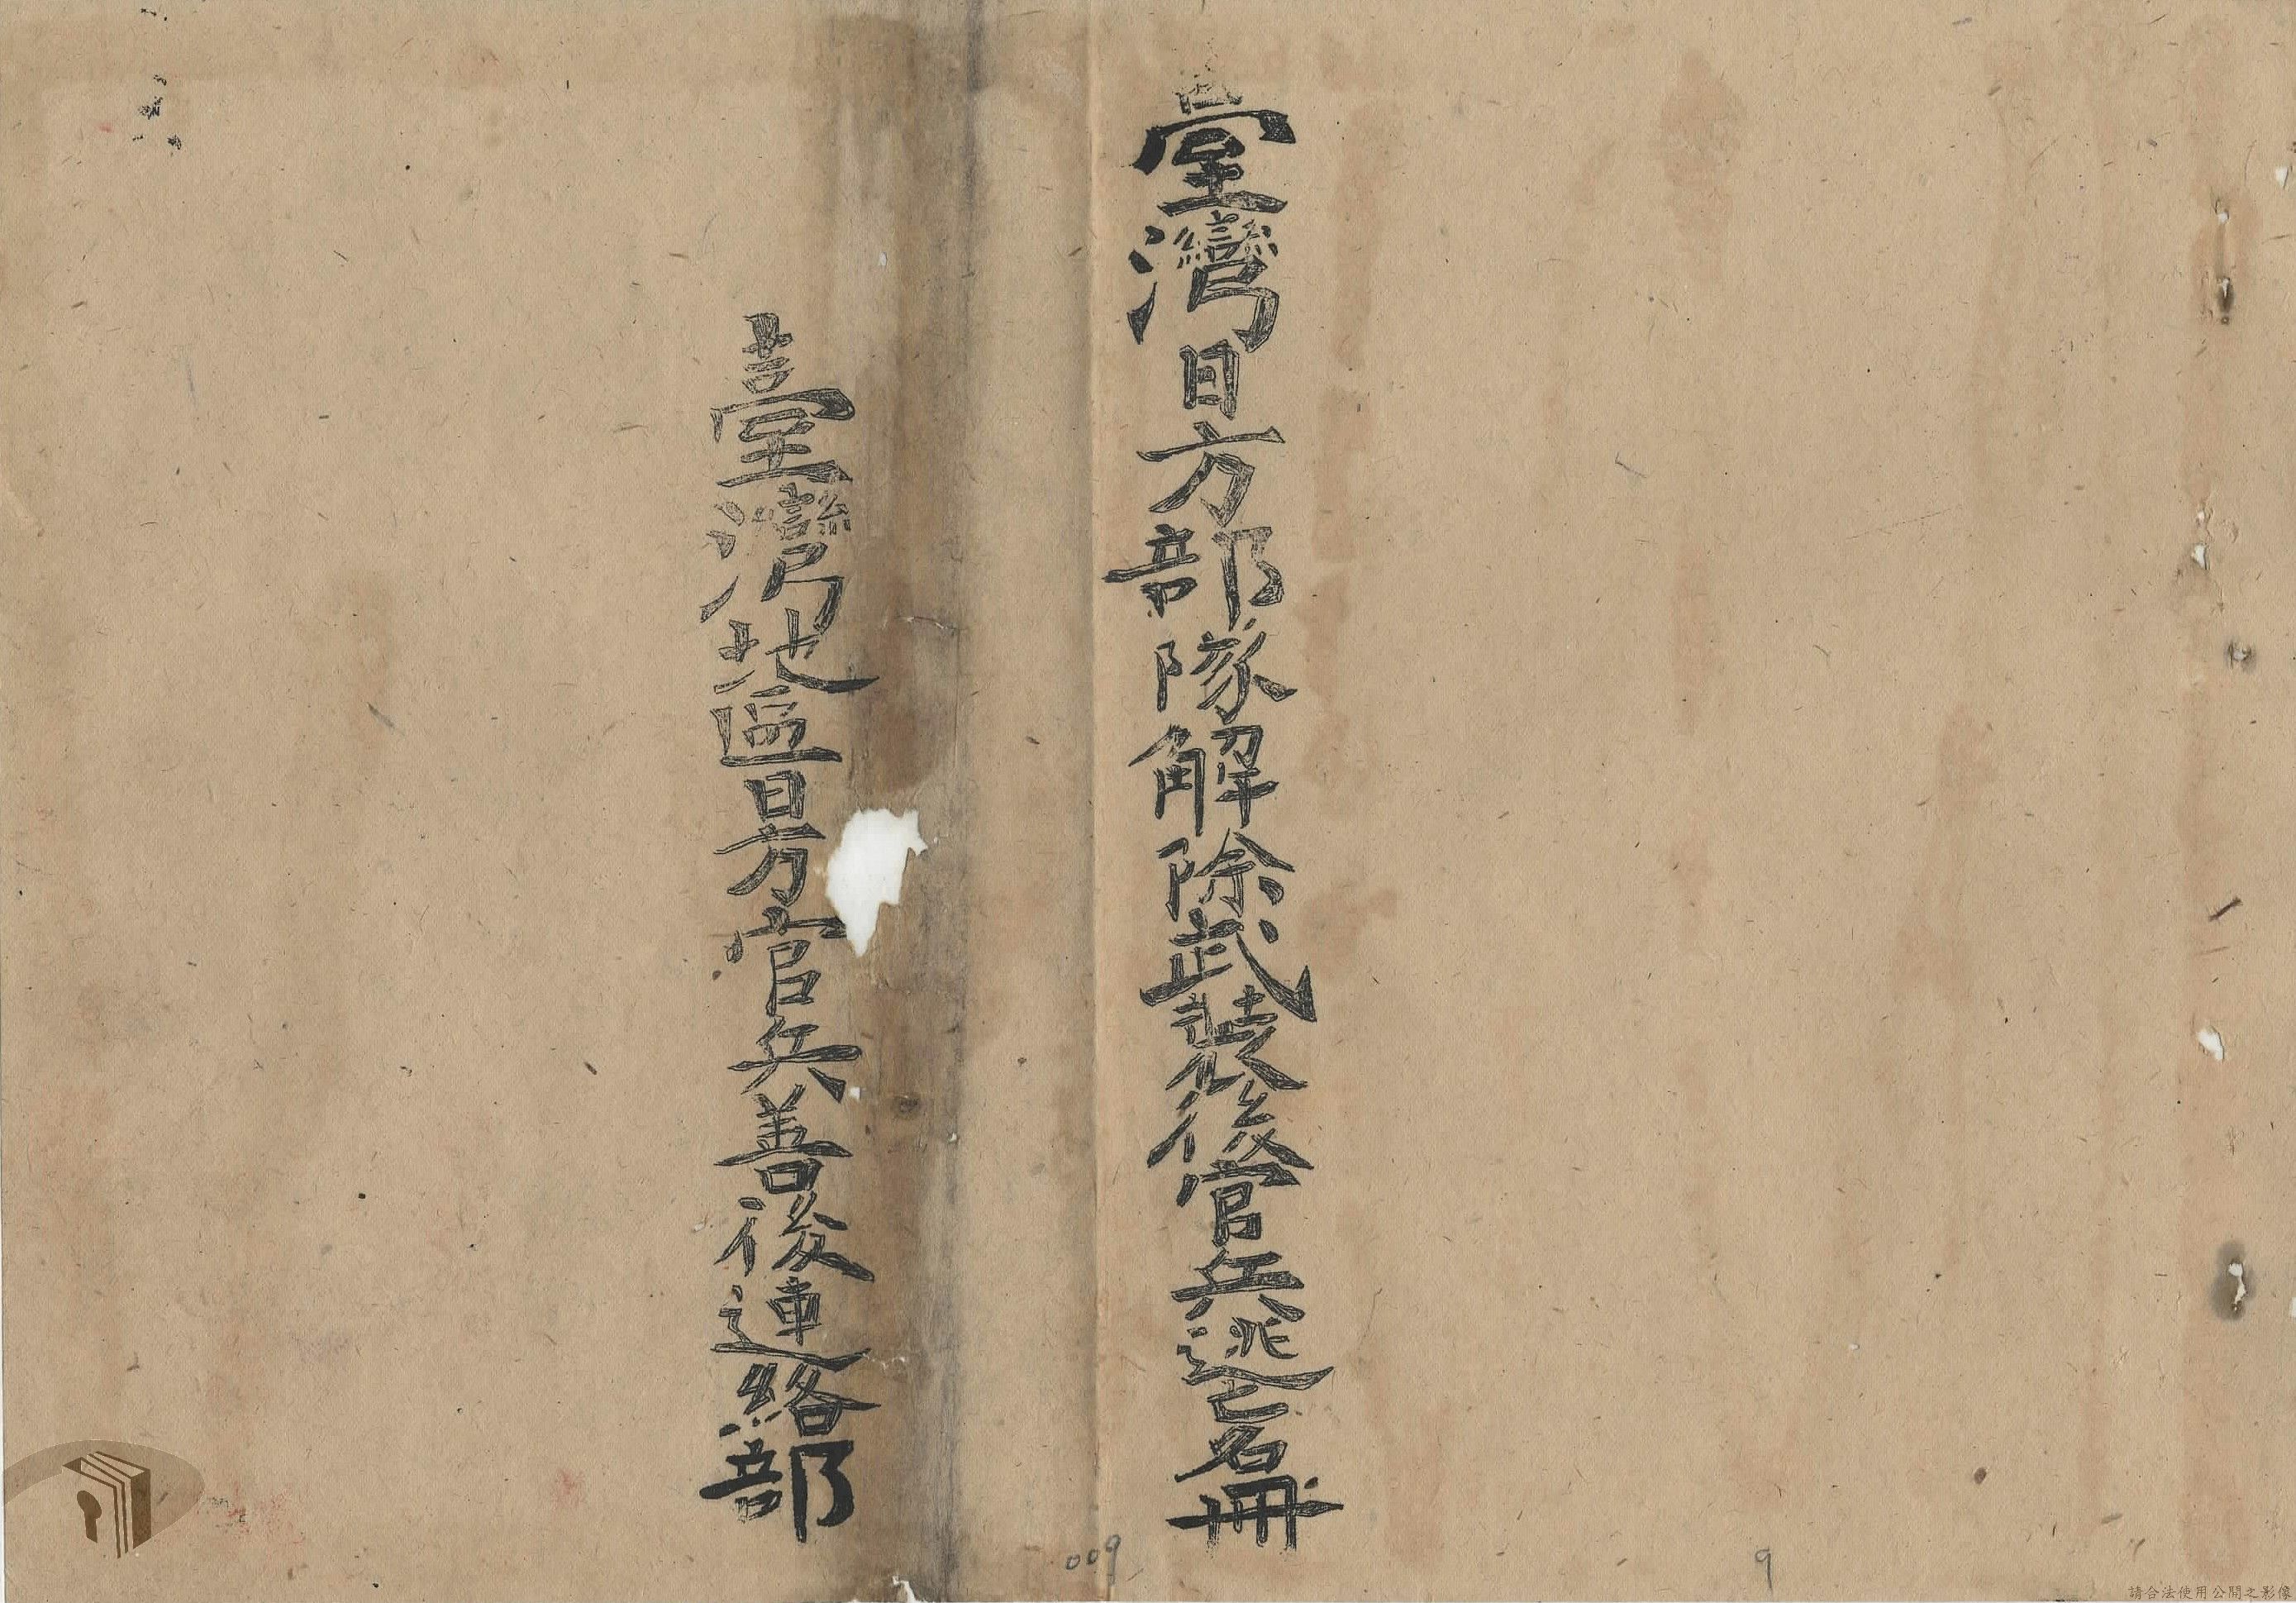 臺灣日方部隊解除武裝後官兵逃亡名冊
臺灣地區日方官兵善後連絡部
009
9
請合法使用公開之影像